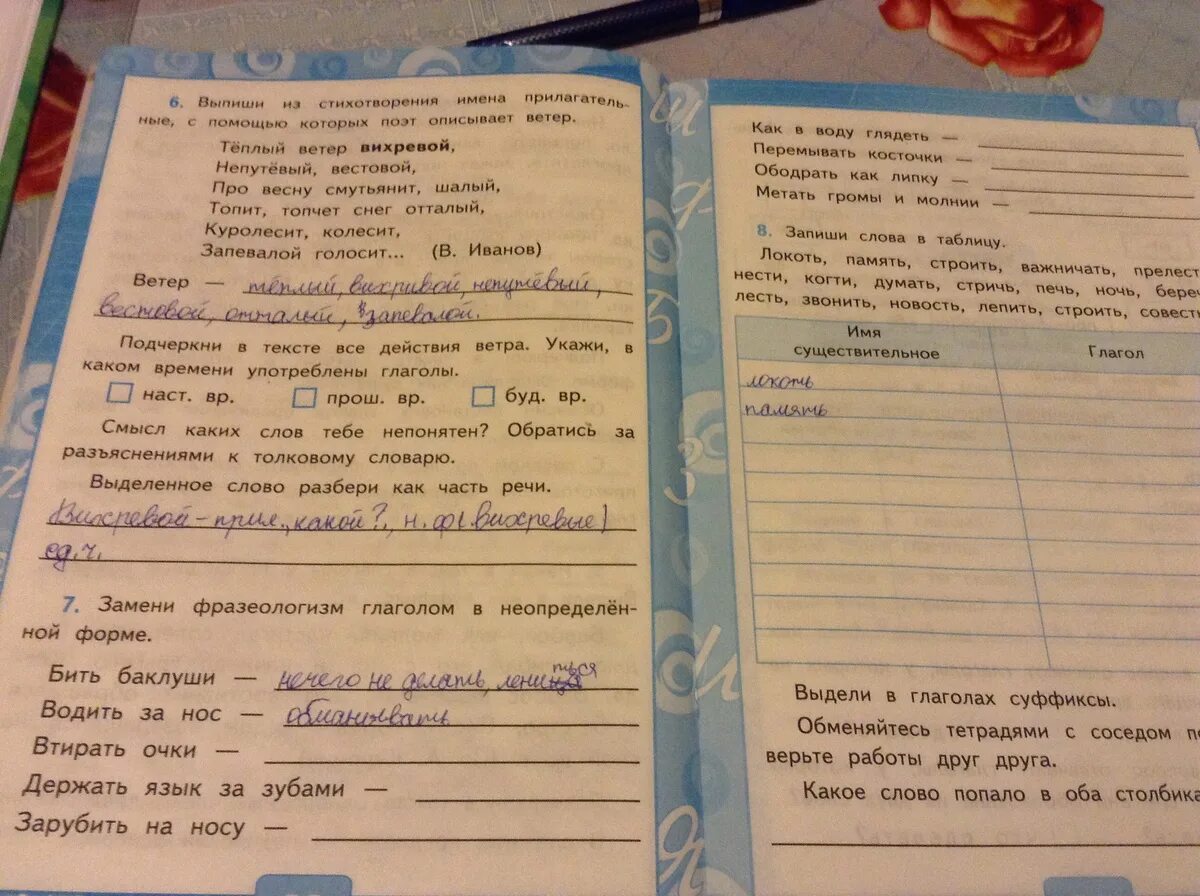 6. Выпиши из стихотворения имена прилагатель-
ные, с помощью которых поэт описывает ветер.
Тёплый ветер вихревой,
Непутёвый, вестовой,
Про весну смутьянит, шалый,
Топит, топчет снег отталый,
Куролесит, колесит,
Запевалой голосит... (В. Иванов)
Ветер — тёплый, вихривой, непутёвый,
вестовой, отталый, запевалой.
Подчеркни в тексте все действия ветра. Укажи, в
каком времени употреблены глаголы.
наст. вр. прош. вр. буд. вр.
Смысл каких слов тебе непонятен? Обратись за
разъяснениями к толковому словарю.
Выделенное слово разбери как часть речи.
Вихревой - прил., какой?, н. ф( вихревые)
ед. ч.
7. Замени фразеологизм глаголом в неопределён-
ной форме.
Бить баклуши — нечего не делать, лениться
Водить за нос — обманивать
Втирать очки —
Держать язык за зубами —
Зарубить на носу —
Как в воду глядеть —
Перемывать косточки —
Ободрать как липку —
Метать громы и молнии —
8. Запиши слова в таблицу.
Локоть, память, строить, важничать, прелест
нести, когти, думать, стричь, печь, ночь, береч
лесть, звонить, новость, лепить, строить, совест
Имя
существительное
Глагол
локоть
память
Выдели в глаголах суффиксы.
Обменяйтесь тетрадями с соседом п
верьте работы друг друга.
Какое слово попало в оба столбика